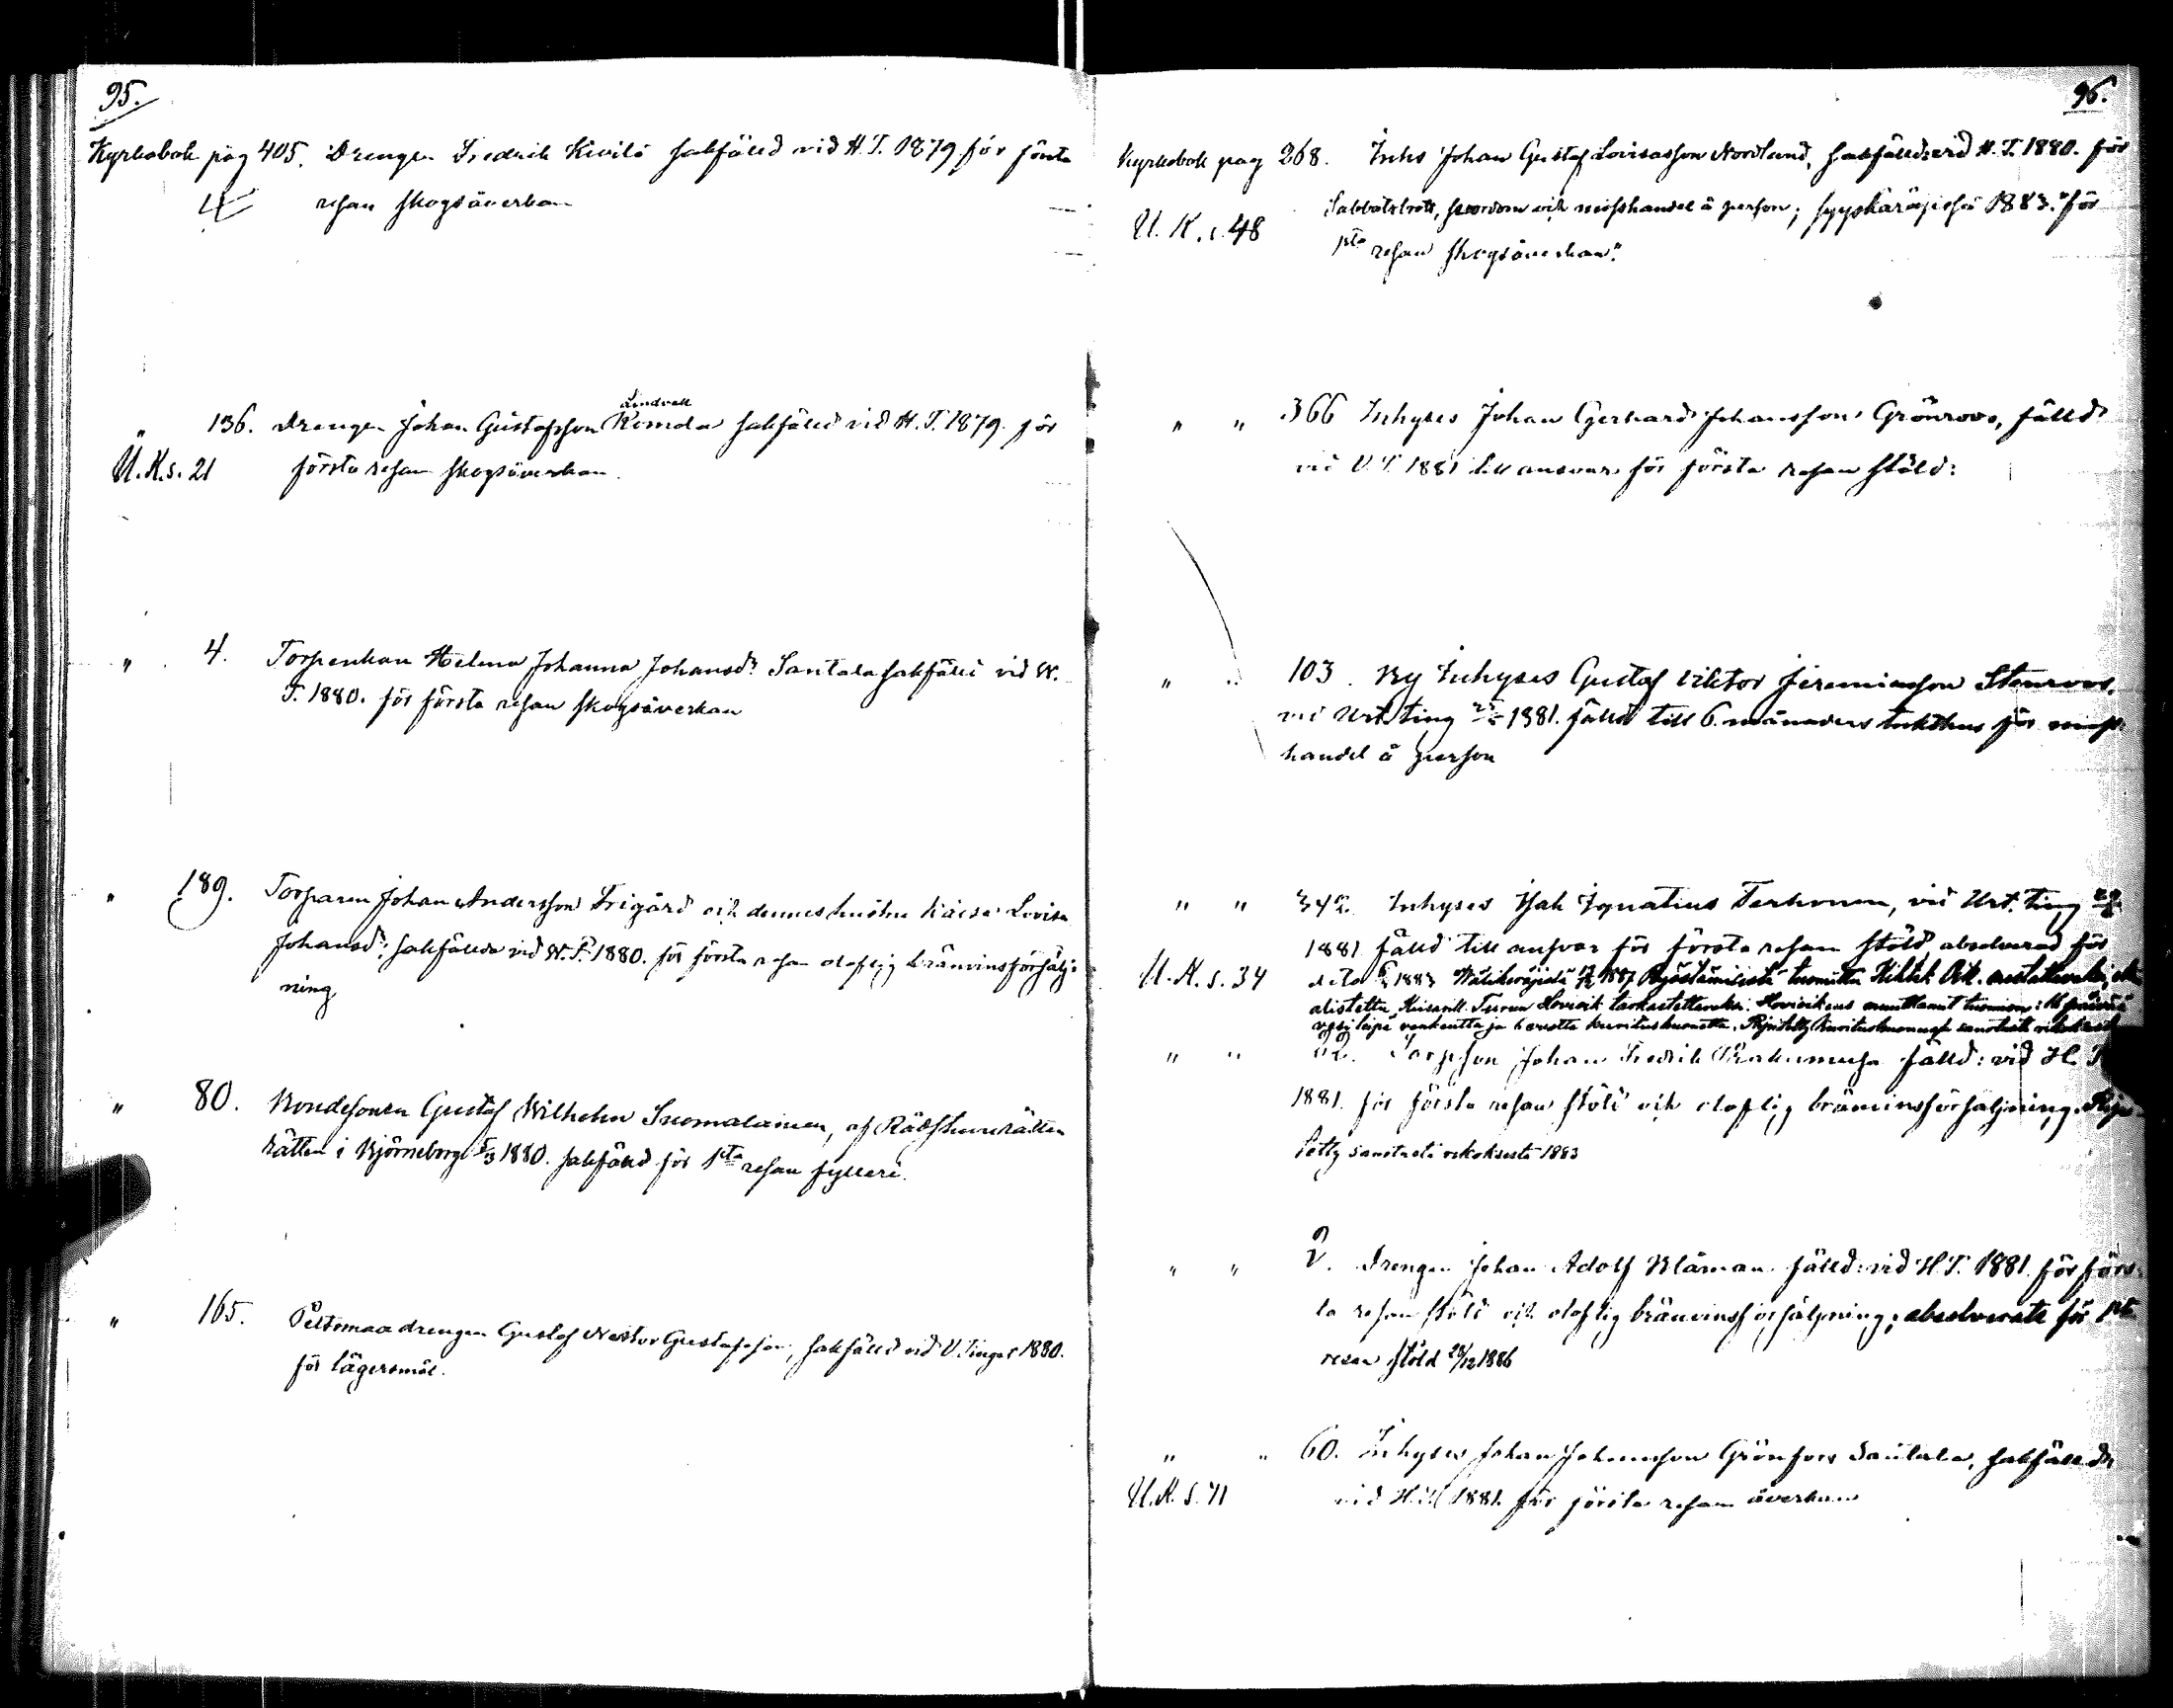 95.
Kyrkobok pag 405. Drengen Fredrik Kivilä sakfälld vid H.T. 1879 för första
resan skogsåverkan
" 136. Drengen Johan Gustafsson Lindvall Romda sakfälld vid H.T. 1879. för
U.K.s. 21 första resan skogsåverkan.
" 4. Torpenkan Helena Johanna Johansdr Santala sakfälld vid W.
T. 1880. för första resan skogsåverkan
" 189. Torparen Johan Andersson Frigård och dennes hustru Kaisa Lovisa
Johansdr: sakfällda vid W.T. 1880. för första resan olaflig bränvinsförsälj-
ning
" 80. Bondesonen Gustaf Wilhelm Suomalainen, af Rådstufvurätten
rätten i Björneborg 1880. sakfälld för 1sta resan fylleri.
" 165. Peltomaa drengen Gustaf Nestor Gustafsson, sakfälld vid V. Tinget 1880.
för lägersmål.
96.
Kyrkobok pag 268. Inhs Johan Gustaf Lovisasson Nordlund, sakfälld: vid H.T. 1880. för
Sabbatsbrott, svordom och misshandel å person; syyskäräjissä 1883. "för
U.K.s. 48 1sta resan skogsåverkan".
" " 366 Inhyses Johan Gerhard Johansson Grönroos, fälld
vid V.T. 1881 till ansvar för första resan stöld:
" " 103. By Inhyses Gustaf Viktor Jeremiasson Stenroos.
vid Urt. ting 1881. fälld till 6 månaders tukthus för miss-
handel å person
" " 342. Inhyses Isak Ignatius Terhonen, vid Urt. ting
1881 fälld till ansvar för första resan stöld, absolverad för
U.K.s. 34 dito 1883 Wälikäräjistä 1887 Ryöstämisestä tuomittu
alistettu Keisarill. Turun Hovioik. tarkastettavaksi. Hovioikeus muuttanut tuomion: 16 päivää
vesi leipä vankeutta ja 6 vuotta kuritushuonetta.
" " Torpson Johan Fredrik fälld: vid H. T.
1881. för första resan stöld och olaflig bränvinsförsäljning. Ripi-
tetty sanotusta rikoksesta 1883
" " 2. Drengen Johan Adolf Blåman fälld: vid H.T. 1881 för förs-
ta resan stöld och olaflig bränvinsförsäljning; absolverats för 1sta
resan stöld 28/12 1886
" " 60. Inhyses Johan Johansson Grönfors Santala, sakfälld
U.K.s. 71 vid H.T. 1881. för första resan åverkan